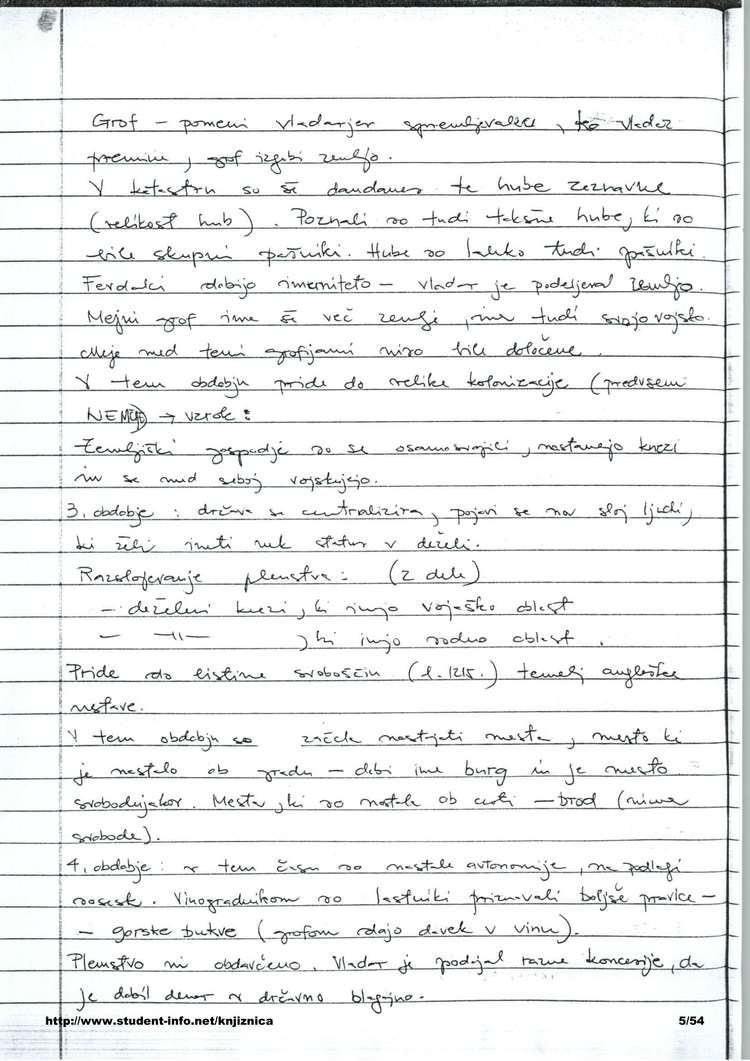 Grof – pomeni vladarjev spremljevalec, ko vladar
premine, grof izgubi zemljo.
V katastru so še dandanes te hube zeznavne
(velikost hub). Poznali so tudi takšne hube, ki so
bile skupni pašniki. Hube so lahko tudi pašniki.
Fevdalci dobijo imuniteto – vladar je podeljeval zemljo.
Mejni grof ima še več zemlje, ima tudi svojo vojsko.
Meje med temi grofijami niso bile določene.
V tem obdobju pride do velike kolonizacije (predvsem
→ vzrok:
Zemljiški gospodje so se osamosvojili, nastanejo knezi
in se med seboj vojskujejo.
3. obdobje: država se centralizira, pojavi se nov sloj ljudi,
ki želi imeti nek status v deželi.
Razslojevanje plemstva: (2 dela)
– deželni knezi, ki imajo vojaško oblast
– –||– , ki imajo sodno oblast.
Pride do listine svoboščin (l. 1215.) temelj angleške
ustave.
V tem obdobju so začela nastajati mesta, mesto ki
je nastalo ob gradu – dobi ime burg in je mesto
svobodnjakov. Mesta, ki so nastala ob cesti – brod (nima
svobode).
4. obdobje: v tem času so nastale avtonomije, na podlagi
sosesk. Vinogradnikom so lastniki priznavali boljše pravice –
– gorske bukve (grofom dajo davek v vinu).
Plemstvo ni obdavčeno. Vladar je podeljal razne koncesije, da
je dobil denar v državno blagajno.
http://www.student-info.net/knjiznica 5/54